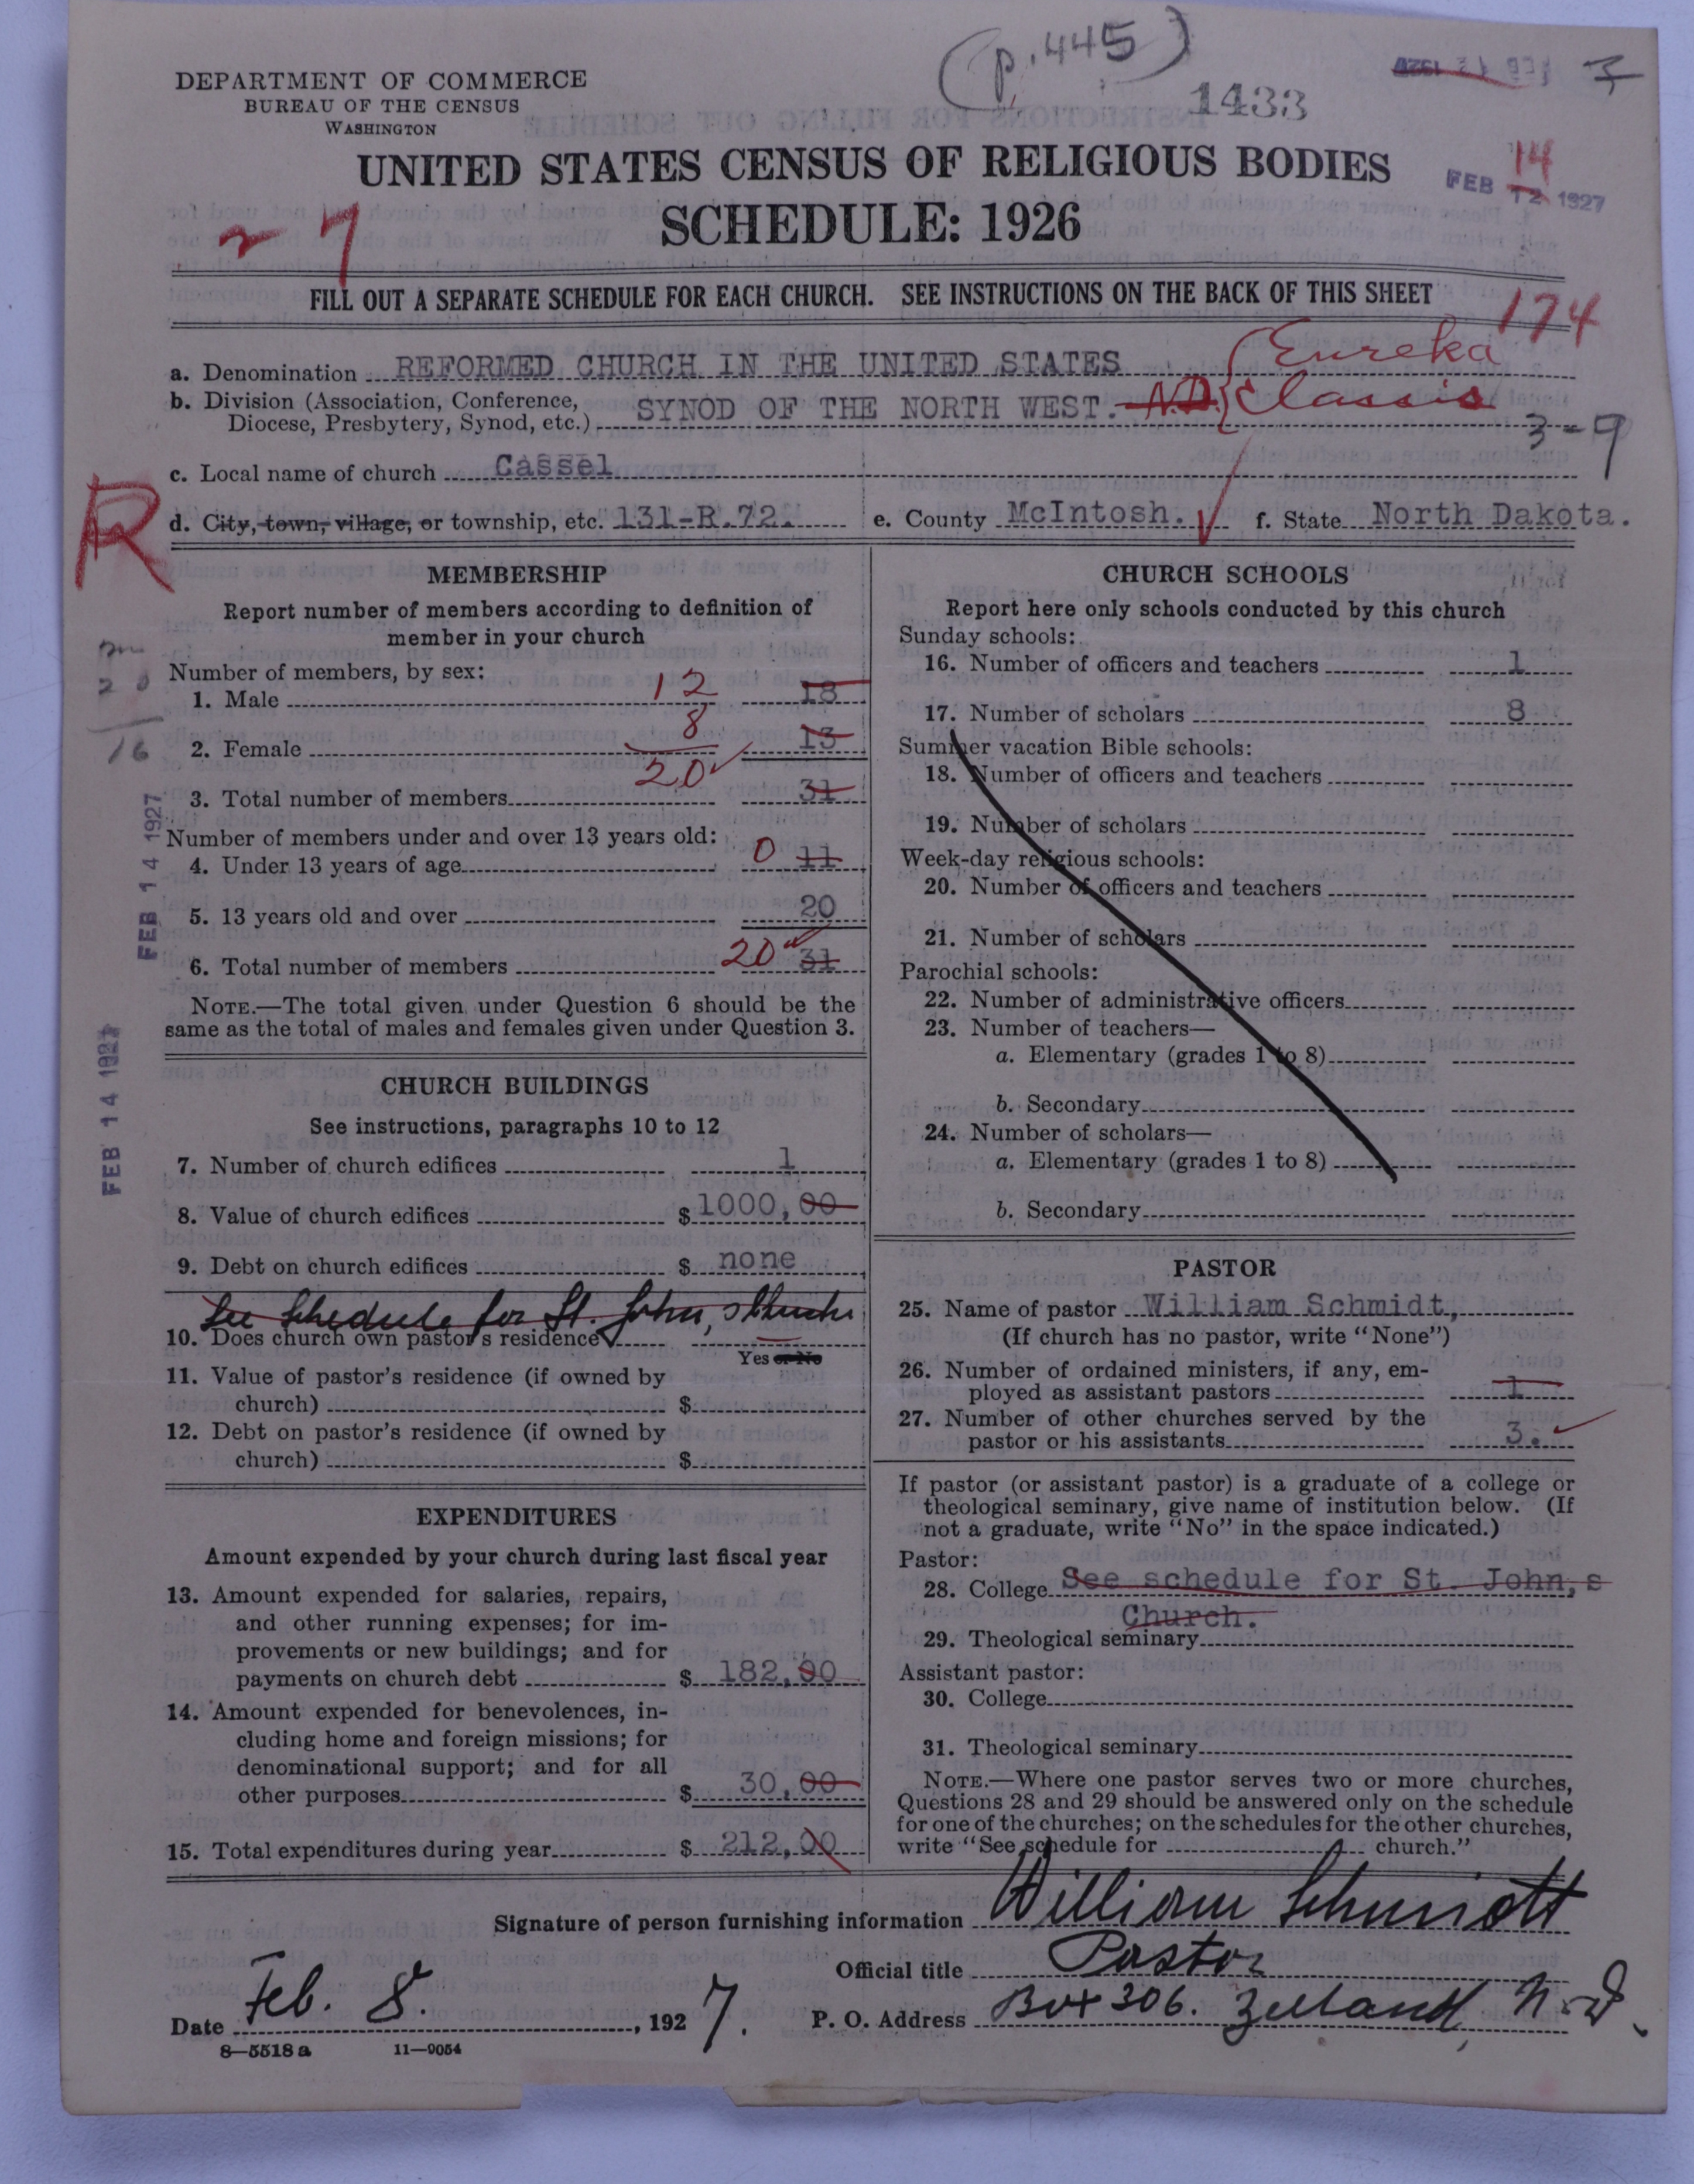 (p. 445)
1433
DEPARTMENT OF COMMERCE
BUREAU OF THE CENSUS
WASHINGTON
UNITED STATES CENSUS OF RELIGIOUS BODIES
SCHEDULE: 1926
14
FEB 12 1927
7
FILL OUT A SEPARATE SCHEDULE FOR EACH CHURCH. SEE INSTRUCTIONS ON THE BACK OF THIS SHEET
174
a. Denomination REFORMED CHURCH IN THE UNITED STATES Eureka
b. Division (Association, Conference, Diocese, Presbytery, Synod, etc.) SYNOD OF THE NORTH WEST. N.D. Classis
3-9
c. Local name of church Cassel
R
d. City, town, village, or township, etc. 131-R.72. e. County McIntosh. f. State North Dakota.
MEMBERSHIP
Report number of members according to definition of
member in your church
Number of members, by sex:
1. Male 12 18
2. Female 8 13
20
3. Total number of members 31
Number of members under and over 13 years old:
4. Under 13 years of age 0 11
5. 13 years old and over 20
6. Total number of members 20 31
NOTE.—The total given under Question 6 should be the
same as the total of males and females given under Question 3.
16
FEB 14 1927
FEB 14 1927
CHURCH BUILDINGS
See instructions, paragraphs 10 to 12
7. Number of church edifices 1
8. Value of church edifices $ 1000,00
9. Debt on church edifices $ none
See Schedule for St. John, s Church
10. Does church own pastor's residence
Yes or No
11. Value of pastor's residence (if owned by
church) $
12. Debt on pastor's residence (if owned by
church) $
EXPENDITURES
Amount expended by your church during last fiscal year
13. Amount expended for salaries, repairs,
and other running expenses; for im-
provements or new buildings; and for
payments on church debt $ 182,00
14. Amount expended for benevolences, in-
cluding home and foreign missions; for
denominational support; and for all
other purposes $ 30,00
15. Total expenditures during year $ 212,00
CHURCH SCHOOLS
Report here only schools conducted by this church
Sunday schools:
16. Number of officers and teachers 1
17. Number of scholars 8
Summer vacation Bible schools:
18. Number of officers and teachers
19. Number of scholars
Week-day religious schools:
20. Number of officers and teachers
21. Number of scholars
Parochial schools:
22. Number of administrative officers
23. Number of teachers—
a. Elementary (grades 1 to 8)
b. Secondary
24. Number of scholars—
a. Elementary (grades 1 to 8)
b. Secondary
PASTOR
25. Name of pastor William Schmidt,
(If church has no pastor, write "None")
26. Number of ordained ministers, if any, em-
ployed as assistant pastors 1
27. Number of other churches served by the
pastor or his assistants 3.
If pastor (or assistant pastor) is a graduate of a college or
theological seminary, give name of institution below. (If
not a graduate, write "No" in the space indicated.)
Pastor:
28. College See schedule for St. John, s
Church.
29. Theological seminary
Assistant pastor:
30. College
31. Theological seminary
NOTE.—Where one pastor serves two or more churches,
Questions 28 and 29 should be answered only on the schedule
for one of the churches; on the schedules for the other churches,
write "See schedule for church."
Signature of person furnishing information William Schmidt
Official title Pastor
Date Feb. 8. , 1927. P. O. Address Box 306. Zeeland, N.D.
8—5518 a 11—9054